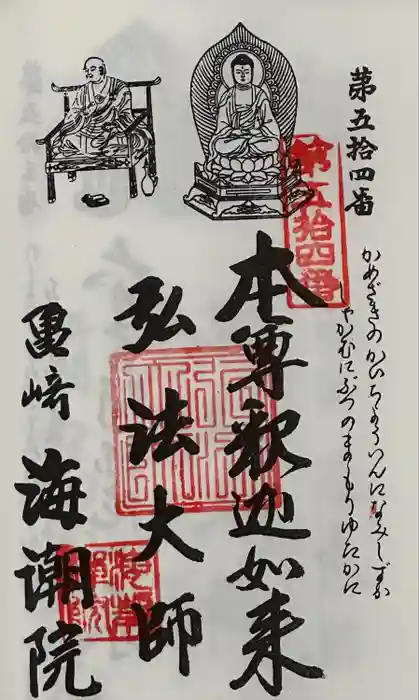 第五拾四番
第五拾四番
かめざきのかいちょういんになみしずか
しゃかむにぶつのまもりゆたかに
本尊釈迦如来
弘法大師
亀崎
海潮院